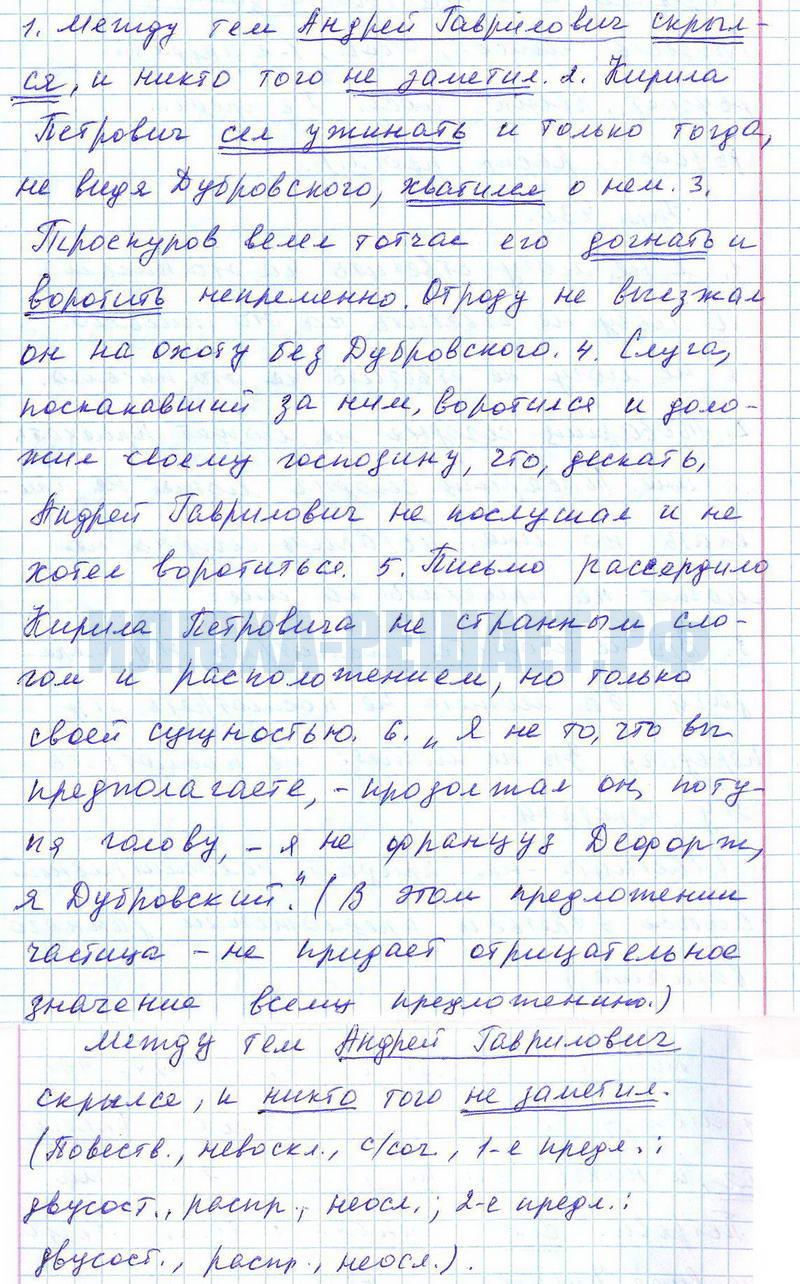 1. Между тем Андрей Гаврилович скрыл-
ся, и никто того не заметил. 2. Кирила
Петрович сел ужинать и только тогда,
не видя Дубровского, хватился о нем. 3.
Троекуров велел тотчас его догнать и
воротить непременно. Отроду не выезжал
он на охоту без Дубровского. 4. Слуга,
поскакавший за ним, воротился и доло-
жил своему господину, что, дескать,
Андрей Гаврилович не послушал и не
хотел воротиться. 5. Письмо рассердило
Кирила Петровича не странным сло-
гом и расположением, но только
ИЛЮХА-РЕШАЕТ.РФ
своей сущностью. 6. „Я не то, что вы
предполагаете, - продолжал он, поту-
пя голову, - я не француз Дефорж,
я Дубровский". (В этом предложении
частица - не придает отрицательное
значение всему предложению.)
Между тем Андрей Гаврилович
скрылся, и никто того не заметил.
(Повеств., невоскл., с/соч, 1-е предл.:
двусост., распр., неосл.; 2-е предл.:
двусост., распр., неосл.).